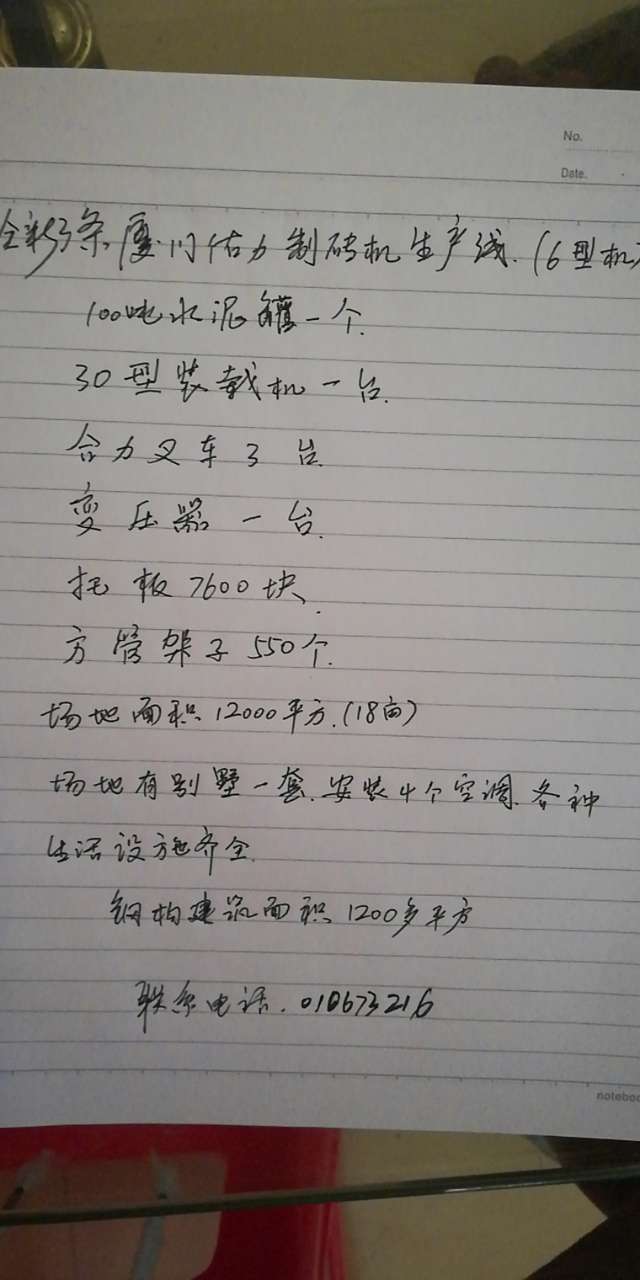 No.
Date.
全新3条厦门佶力制砖机生产线.(6型机)
100吨水泥罐一个.
30型装载机一台.
合力叉车3台.
变压器一台.
托板7600块.
方管架子550个.
场地面积12000平方.(18亩)
场地有别墅一套.安装4个空调.各种
生活设施齐全.
钢构建筑面积1200多平方
联系电话.010673216
noteboo